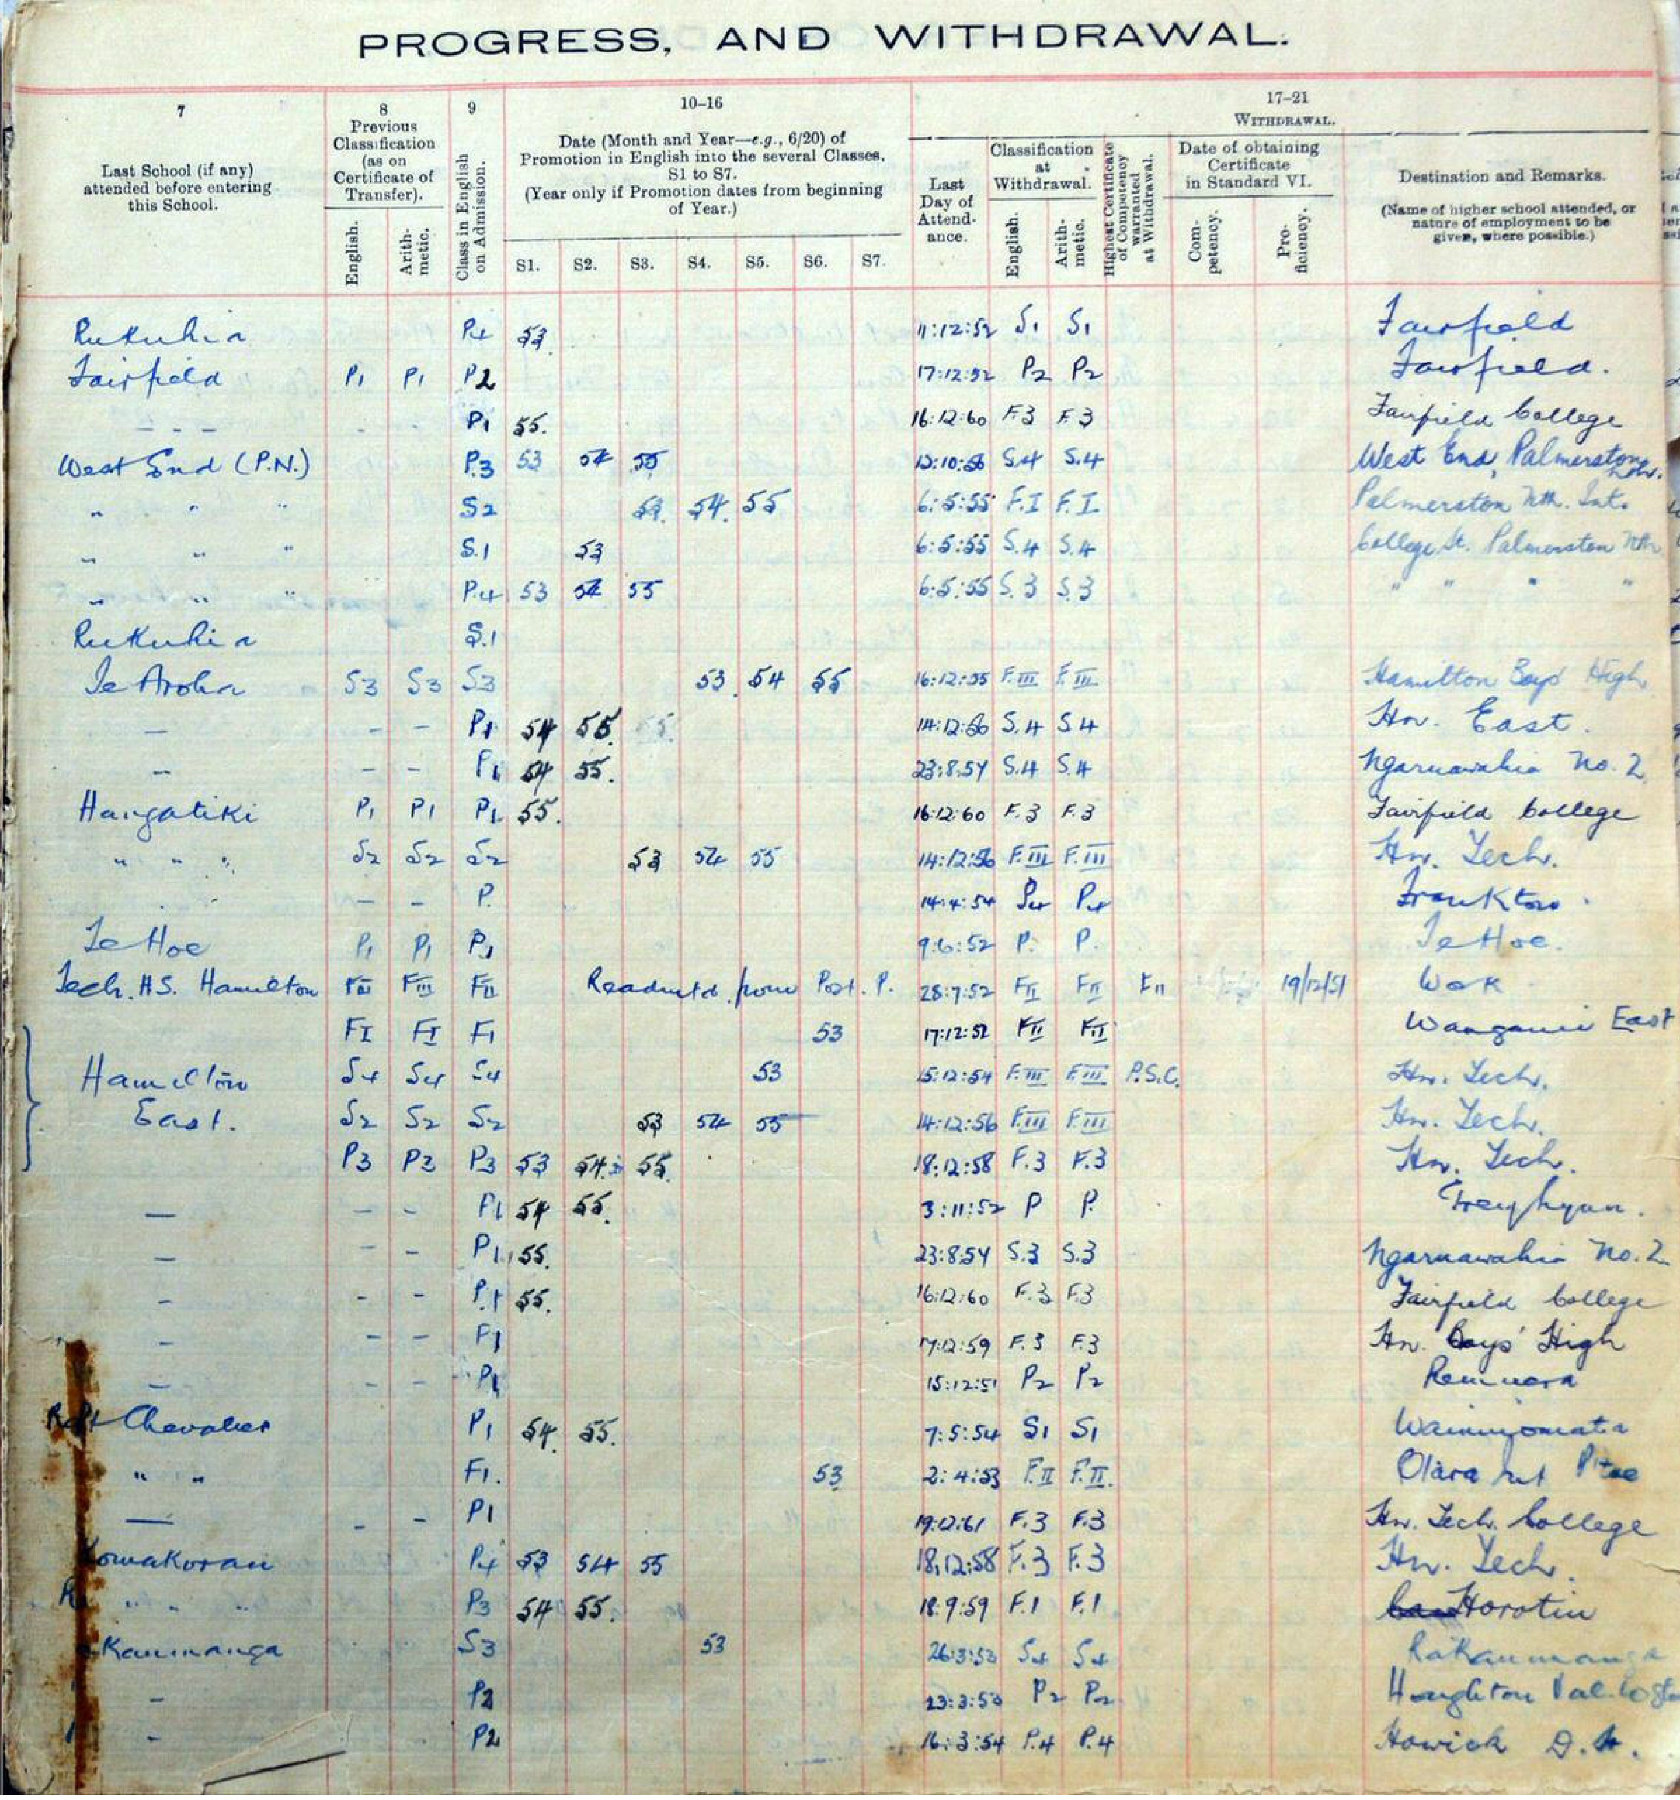 PROGRESS, AND WITHDRAWAL.
7 8 9 10–16 17–21
Last School (if any) attended before entering this School.
Previous Classification (as on Certificate of Transfer).
English. Arith-metic.
Class in English on Admission.
Date (Month and Year—e.g., 6/20) of Promotion in English into the several Classes, S1 to S7.
(Year only if Promotion dates from beginning of Year.)
S1. S2. S3. S4. S5. S6. S7.
WITHDRAWAL.
Last Day of Attend-ance.
Classification at Withdrawal.
English. Arith-metic.
Highest Certificate of Competency warranted at Withdrawal.
Date of obtaining Certificate in Standard VI.
Com-petency. Pro-ficiency.
Destination and Remarks.
(Name of higher school attended, or nature of employment to be given, where possible.)
Rukuhia P4 53 11:12:52 S1 S1 Fairfield
Fairfield P1 P1 P2 17:12:52 P2 P2 Fairfield.
- - - P1 55. 16:12:60 F3 F.3 Fairfield College
West End (P.N.) P.3 53 54 55 S.4 S.4 West End, Palmerston Nth.
" " " S2 53. 54. 55 6:5:55 F.I F.I. Palmerston Nth. Int.
" " " S.1 53 6:5:55 S.4 S.4 College St. Palmerston Nth
" " " P.4 53 54 55 6:5:55 S.3 S.3 " " " "
Rukuhia S.1
Te Aroha S3 S3 S3 53 54 55 16:12:55 F.III F.III Hamilton Boys' High
— - - P1 54 55. 55. 14:12:56 S.4 S.4 Hn. East.
— - - P1 54 55. 23:8:54 S.4 S.4 Ngaruawahia No. 2
Hangatiki P1 P1 P1 55. 16:12:60 F.3 F.3 Fairfield College
" " " S2 S2 S2 53 54 55 14:12:56 F.III F.III Hn. Tech.
- - P. 14:4:54 P4 Frankton.
Te Hoe P1 P1 P1 9:6:52 P. P. Te Hoe.
Tech. H.S. Hamilton FIII FIII FII Readmtd. from Post. P. 28:7:52 FII FII FII 19/12/51 Work
FI FI F1 53 17:12:52 FII FII Wanganui East
Hamilton S4 S4 S4 53 15:12:54 F.III F.III P.S.C. Hn. Tech.
East. S2 S2 S2 53 54 55 14:12:56 F.III F.III Hn. Tech.
P3 P3 P3 53 54 55. 18:12:58 F.3 F.3 Hn. Tech.
— - - P1 54 55. 3:11:52 P P.
— - - P1 55. 23:8:54 S.3 S.3 Ngaruawahia No. 2
- - - P.1 55. 16:12:60 F.3 F.3 Fairfield College
- - - F1 17:12:59 F.3 F.3 Hn. Boys' High
- - - P1 15:12:51 P2 P2 Remuera
Pt Chevalier P1 54. 55. 7:5:54 S1 S1 Wainuiomata
" " F1. 53 2:4:53 F.II F.II.
— - - P1 19:12:61 F.3 F.3 Hn. Tech. College
P4 53 54 55 18:12:58 F.3 F.3 Hn. Tech.
" " " P3 54 55. 18:9:59 F.1 F.1 Horotiu
S3 53 26:3:53 S4 S4 Rakaumanga
- P2 23:3:53 P2 P2 Houghton Val.
- P2 16:3:54 P.4 P.4 Howick D.H.